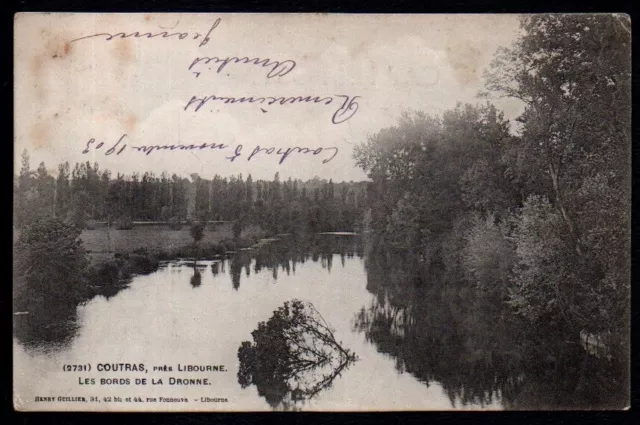 Coutras 5 novembre 1903
Remerciements
Amitiés
Jeanne
(2731) COUTRAS, PRÈS LIBOURNE.
LES BORDS DE LA DRONNE.
HENRY GUILLIER, 31, 42 bis et 44, rue Fonneuve - Libourne